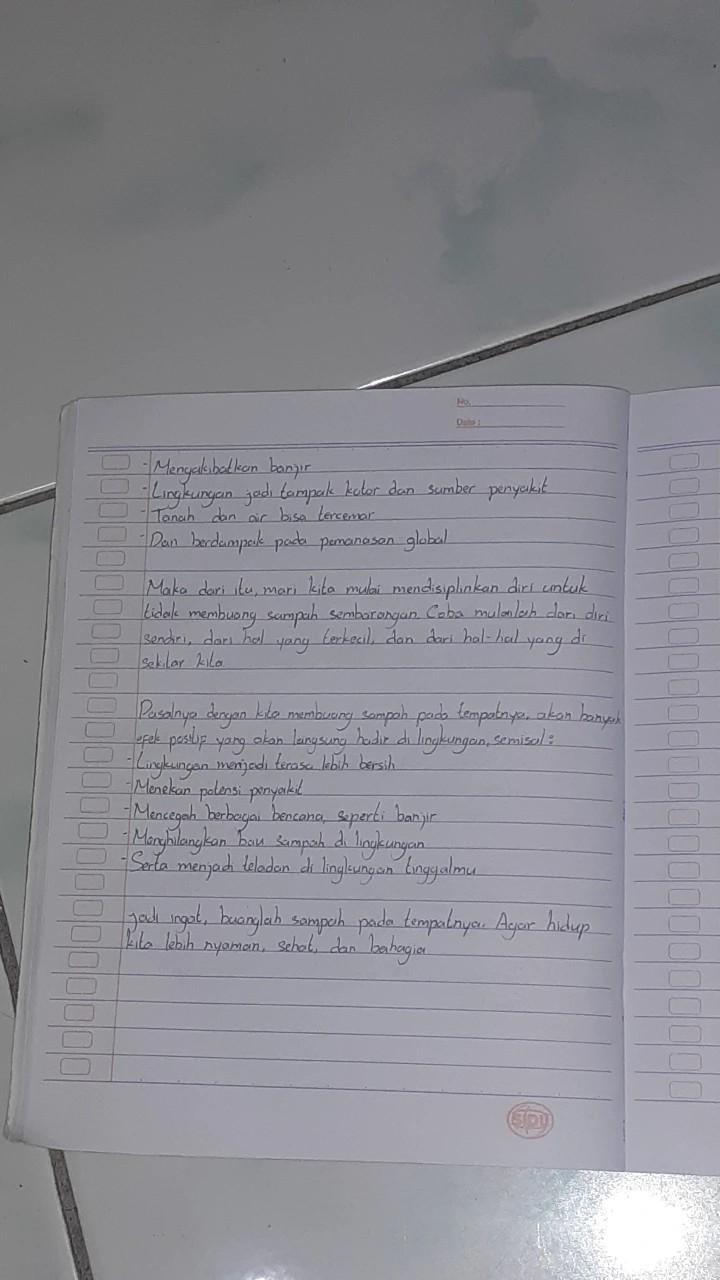 No.
Date :
- Mengakibatkan banjir
- Lingkungan jadi tampak kotor dan sumber penyakit
- Tanah dan air bisa tercemar
- Dan berdampak pada pemanasan global
Maka dari itu, mari kita mulai mendisiplinkan diri untuk
tidak membuang sampah sembarangan. Coba mulailah dari diri
sendiri, dari hal yang terkecil, dan dari hal-hal yang di
sekitar kita
Pasalnya dengan kita membuang sampah pada tempatnya, akan banyak
efek positif yang akan langsung hadir di lingkungan, semisal:
- Lingkungan menjadi terasa lebih bersih
- Menekan potensi penyakit
- Mencegah berbagai bencana, seperti banjir
- Menghilangkan bau sampah di lingkungan
- Serta menjadi teladan di lingkungan tinggalmu
Jadi ingat, buanglah sampah pada tempatnya. Agar hidup
kita lebih nyaman, sehat, dan bahagia
SIDU